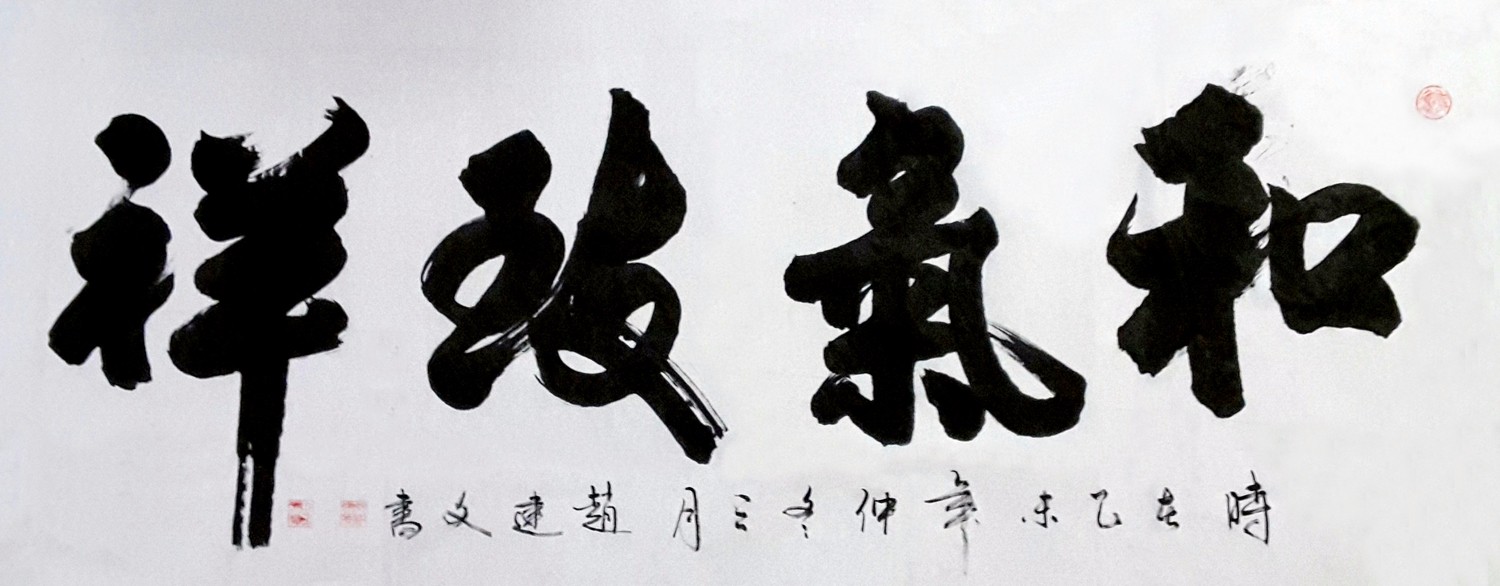 和氣致祥
時在乙未年仲冬三月趙建文書